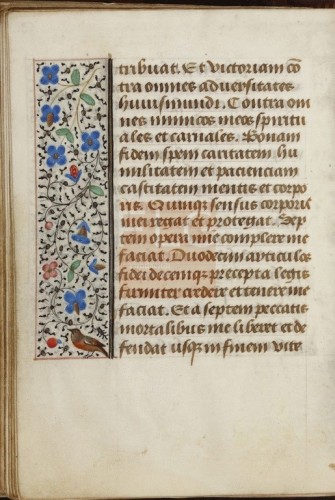 tribuat. Et victoriam cō
tra omnes adversitates
huius mundi. Contra om
nes inimicos meos spiritu
ales et carnales. Bonam
fidem spem caritatem hu
militatem et pacienciam
castitatem mentis et corpo
ris. Quinq̄ sensus corporis
mei regat et protegat. Sep
tem opera mīe complere me
faciat. Duodecim articulos
fidei decemq̄ precepta legis
firmiter credere et tenere me
faciat. Et a septem peccatis
mortalibus me liberet et de
fendat usq̄ in finem vite